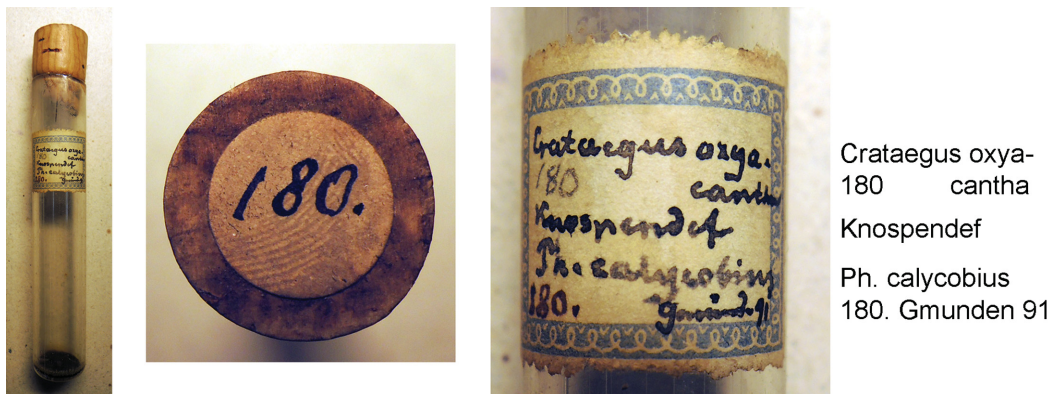 Crataegus oxya.
180 cantha
Knospendef
Ph. calycobius
180.
180.
Crataegus oxya.
180 cantha
Knospendef
Ph. calycobius
180. Gmünd. 91
Crataegus oxya-
180 cantha
Knospendef
Ph. calycobius
180. Gmunden 91